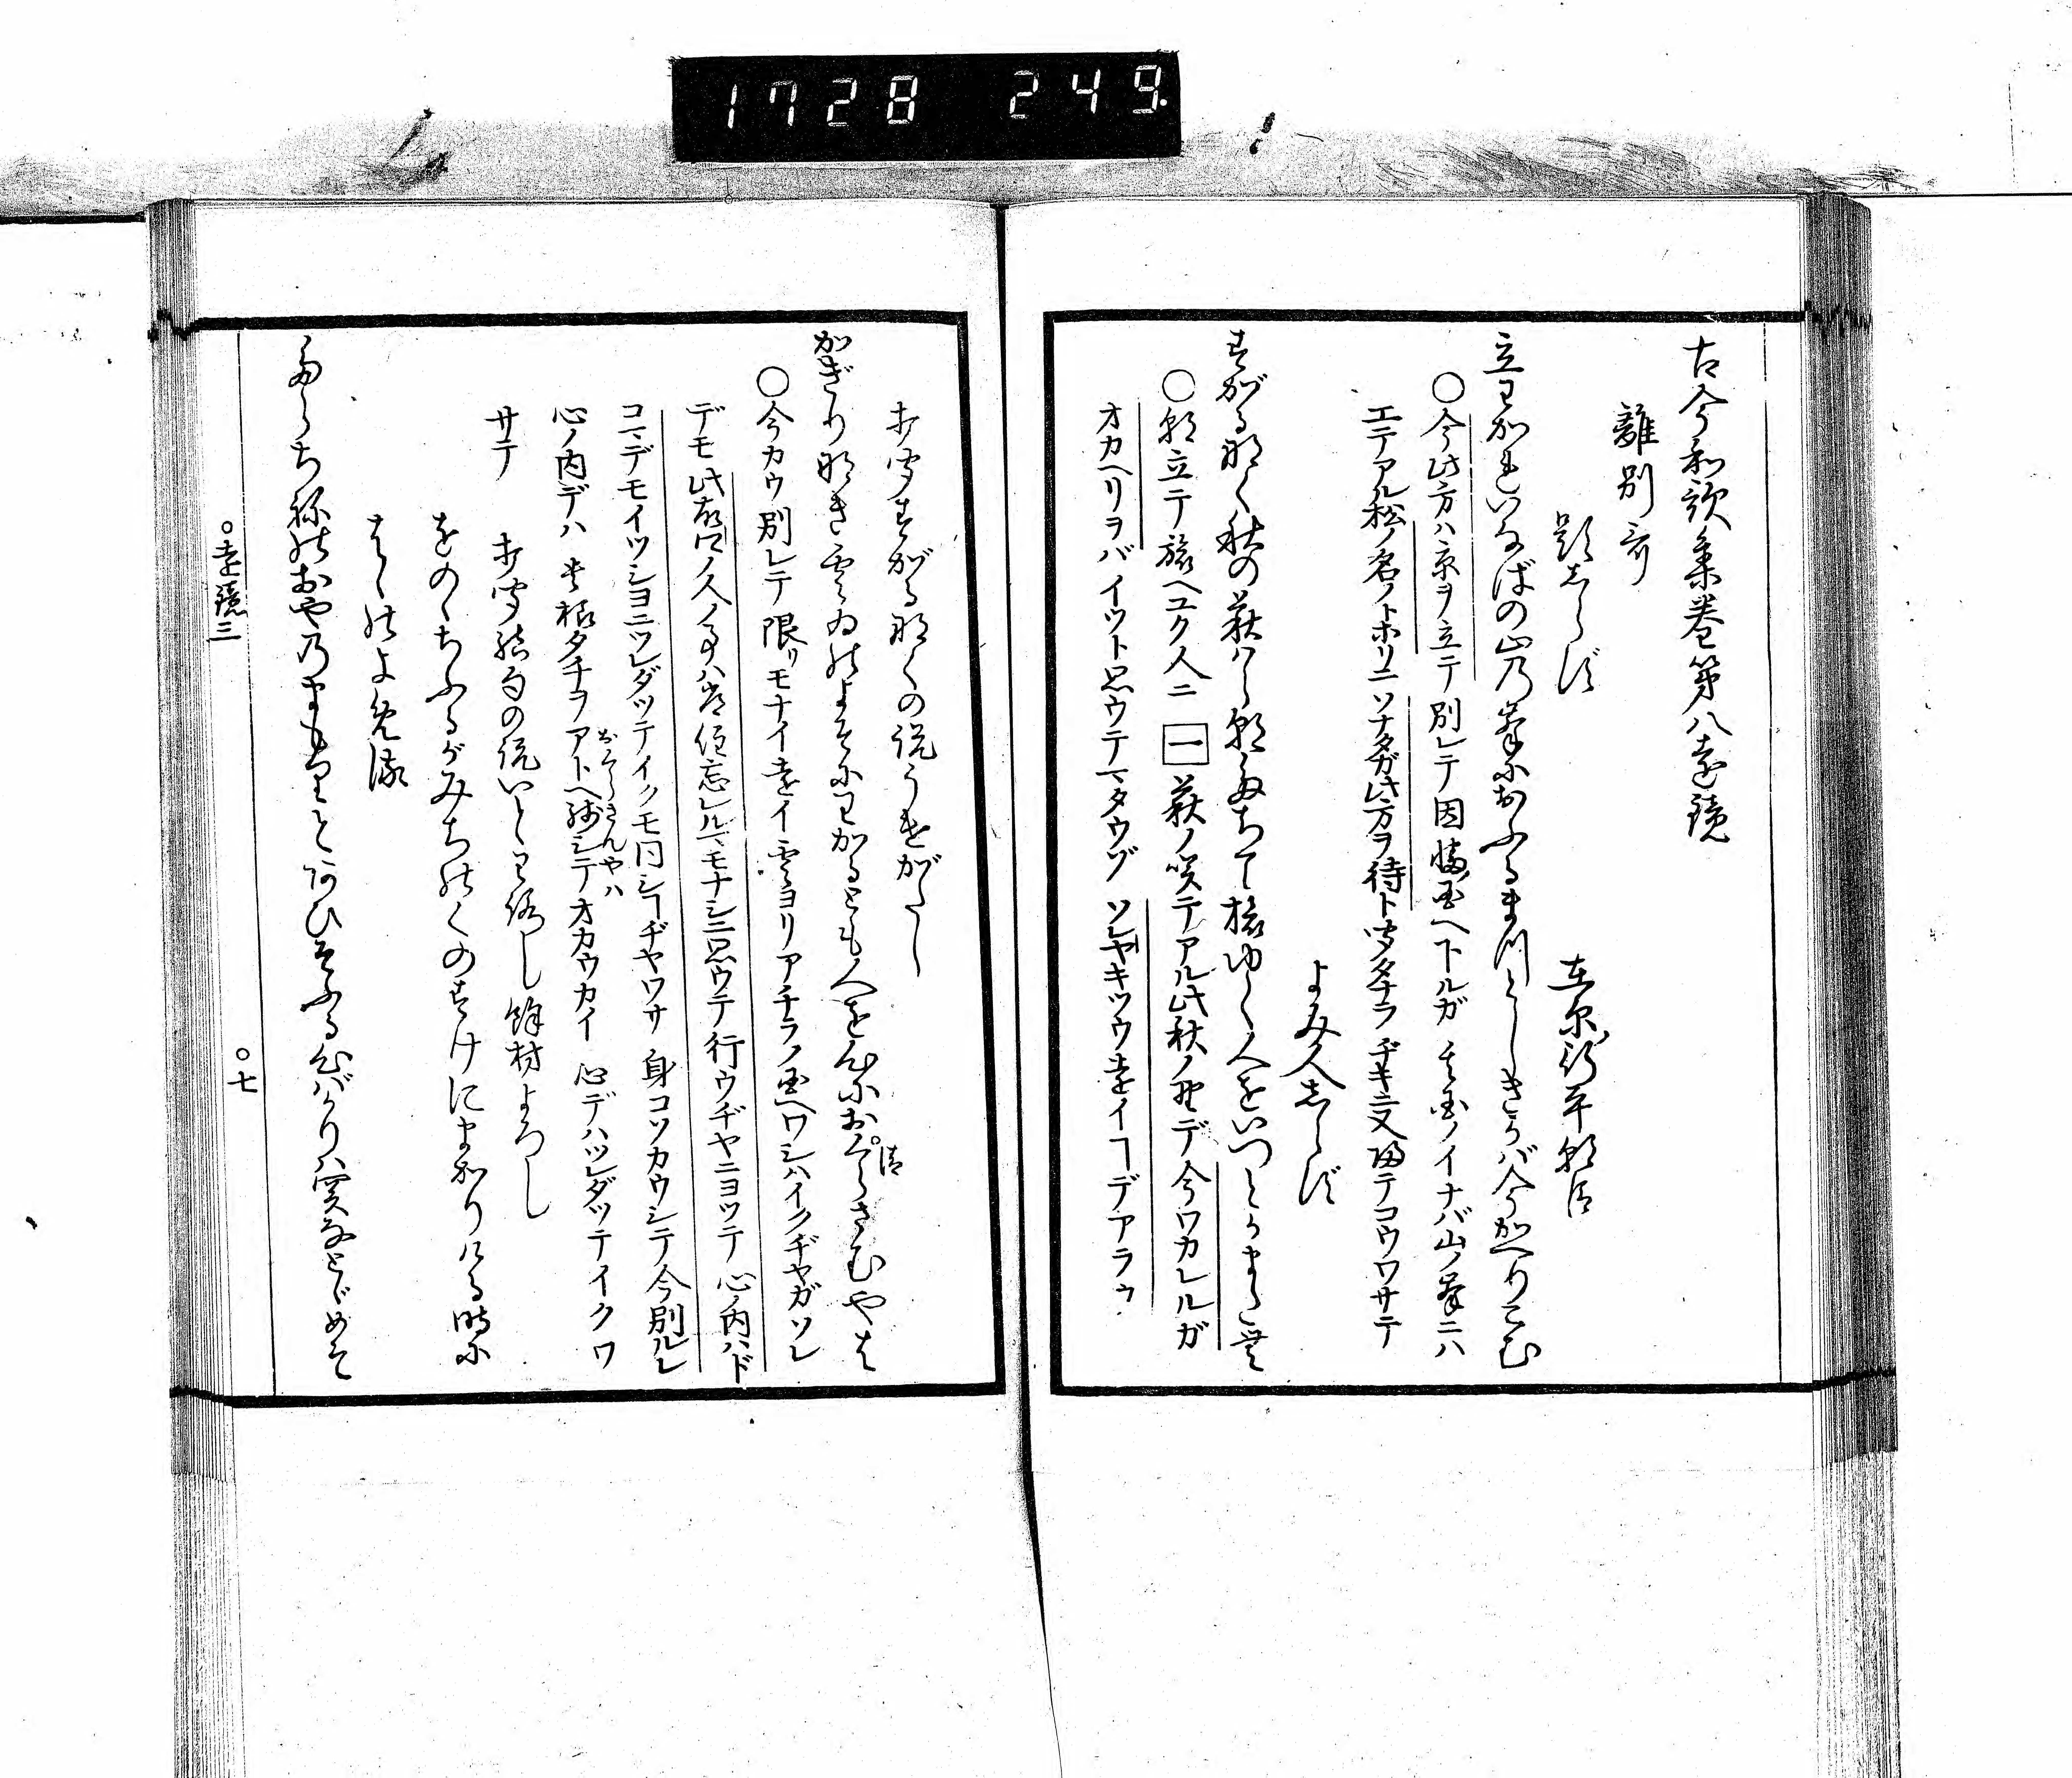 1728 249
古今和歌集巻第八遠鏡
離別哥
題しらず
在原行平朝臣
立わかれいなばの山の峯におふるまつとしきかば今かへりこむ
○今此方ハ京ヲ立テ別レテ因幡国ヘ下ルガ 其国ノイナバ山ノ峯ニハ
エテアル松ノ名ノトホリニ ソナタガ此方ヲ待ト聞タナラ ヂキニ又帰テコウワサテ
よみ人しらず
すがる鳴く秋の萩はら朝たちて旅ゆく人をいつとかまたむ
○朝立テ旅ヘユク人ニ 一 萩ノ咲テアル此秋ノ野デ今ワカレルガ
オカヘリヲバ イツト思ウテマタウゾ ソレヤキツウ遠イコデアラウ
打聞すがる鳴くの説うけがたし
かぎり那き雲ゐのよそにわかるとも人を心におくらさむやは
清
○今カウ別レテ限リモナイ遠イ雲ヨリアチラノ国ヘワシハイクヂヤガ ソレ
デモ此
ノ人ノ事ハ
忘レルマモナシニ思ウテ行ウヂヤニヨツテ 心ノ内ハド
コマデモイツシヨニツレダツテイクモ同シコヂヤワサ 身コソカウシテ今別ルレ
心ノ内デハ 其様タチヲアトヘ残シテオカウカイ 心デハツレダツテイクワ
おくらさんやハ
サテ
打聞結句の説いとわろし 餘材よろし
をののちふるがみちのくのすけにまかりける時に
はゝのよめる
たらちねのおやのまもりとあひそふる心ばかりハ関なとゞめそ
○遠鏡三
○七